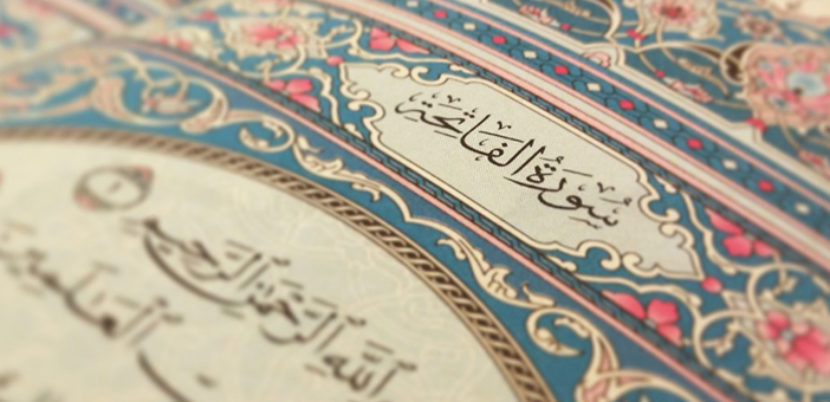 سُورَةُ الفَاتِحَةِ
اللَّهِ الرَّحْمَٰنِ الرَّحِيمِ ١
الْعَٰلَمِينَ